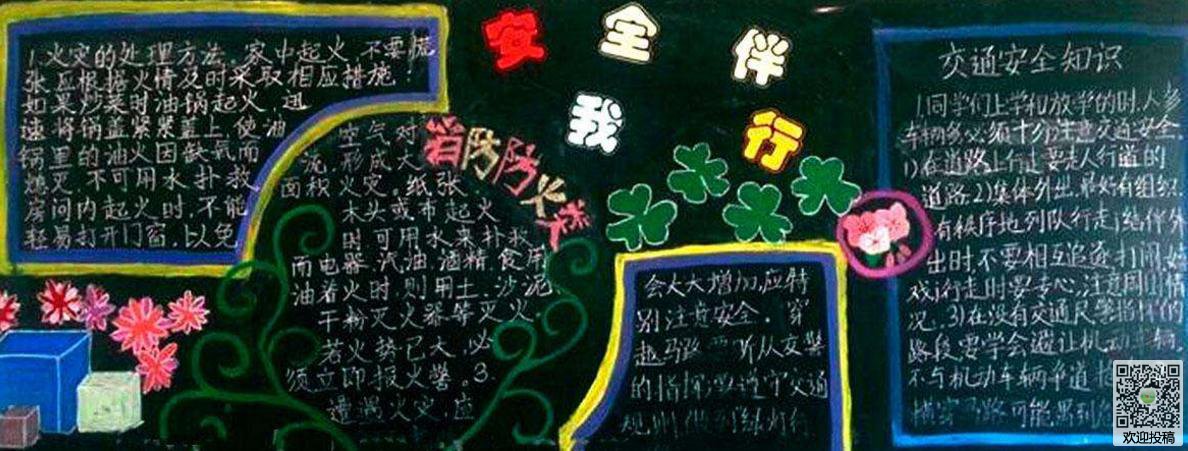 安全伴
我行
消防防火
1.火灾的处理方法。家中起火,不要慌
张应根据火情及时采取相应措施:
如果炒菜时油锅起火,迅
速将锅盖紧紧盖上,使油
锅里的油火因缺氧而
熄灭,不可用水扑救
房间内起火时,不能
轻易打开门窗,以免
空气对
流,形成大
面积火灾。纸张
木头或布起火
时,可用水来扑救,
而电器、汽油、酒精、食用
油着火时,则用土、沙泥、
干粉灭火器等灭火,
若火势已大,必
须立即报火警。3.
遭遇火灾,应
会大大增加,应特
别注意安全。穿
越马路 听从交警
的指挥 遵守交通
规则
交通安全知识
1.同学们上学和放学的时,人多
车辆多,必须十分注意交通安全
1)在道路上行走要走人行道的
道路2)集体外出,最好有组织
有秩序地列队行走;结伴外
出时,不要相互追逐、打闹、嬉
戏;行走时要专心,注意周围情
况。3)在没有交通民警指挥的
路段,要学会避让机动车辆
不与机动车辆争道
横穿马路可能遇到
欢迎投稿